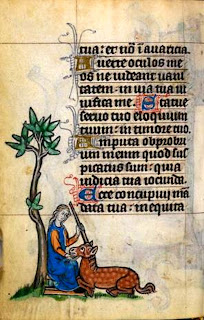 tua: et nō i auaricia
Auerte oculos me
os ne uideant uani
tatem: in uia tua ui
uifica me. Statue
seruo tuo eloquium
tuum: in timore tuo.
Amputa obprobriū
um meum quod sus
picatus sum: quia
iudicia tua iocunda.
Ecce concupiui man
data tua: in equita